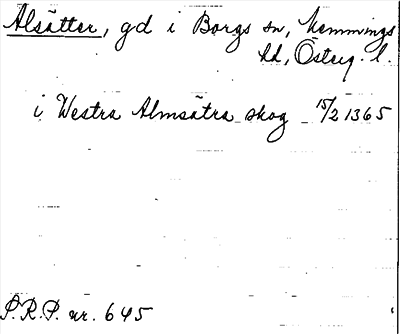 Alsätter, gd i Borgs sn, Memmings
hd, Österg. l.
i Westra Almsätra skog 15/2 1365
S.R.P. nr. 645